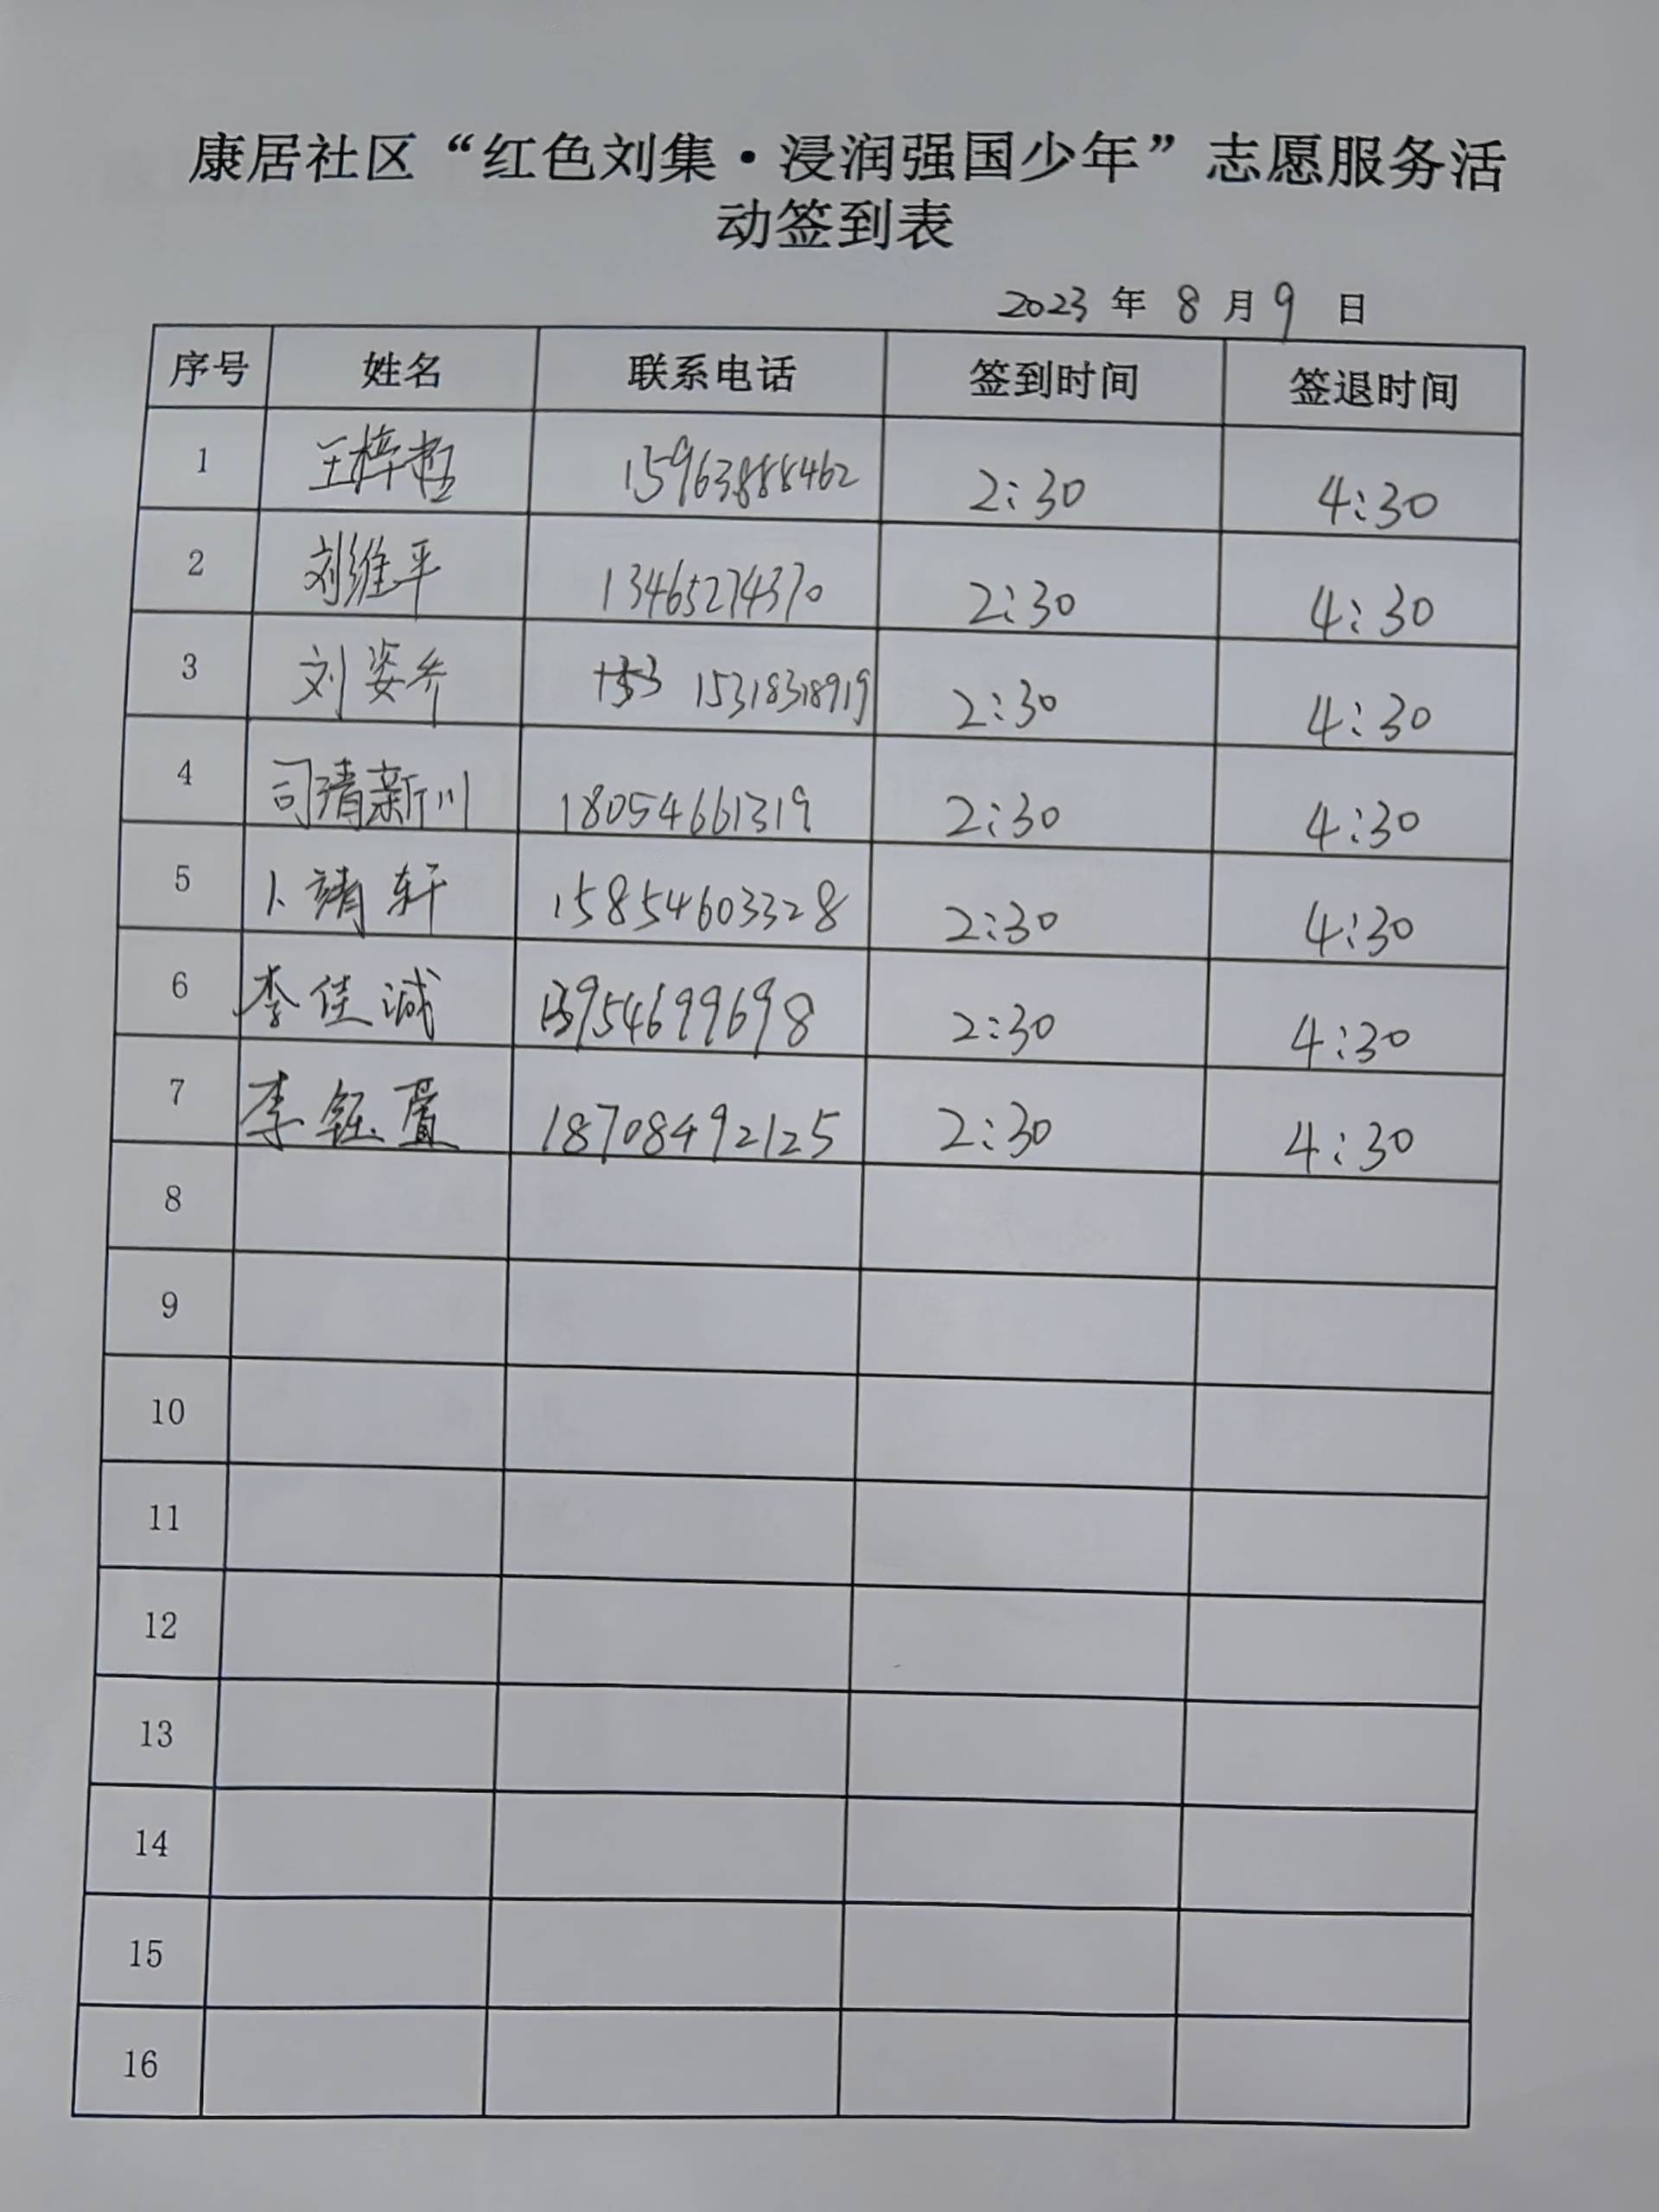 康居社区“红色刘集·浸润强国少年”志愿服务活
动签到表
2023 年 8 月 9 日
序号 姓名 联系电话 签到时间 签退时间
1 王梓 15963888462 2:30 4:30
2 刘维平 13465274370 2:30 4:30
3 刘姿 15318318919 2:30 4:30
4 司清新川 18054661319 2:30 4:30
5 卜靖轩 15854603328 2:30 4:30
6 李佳诚 13954699698 2:30 4:30
7 李钰 18708492125 2:30 4:30
8
9
10
11
12
13
14
15
16